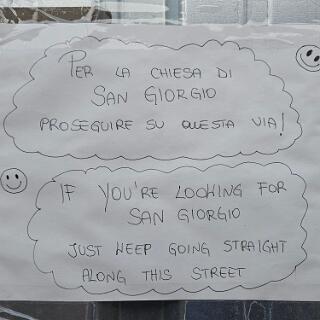 PER LA CHIESA DI
SAN GIORGIO
PROSEGUIRE SU QUESTA VIA!
IF YOU'RE LOOKING FOR
SAN GIORGIO
JUST KEEP GOING STRAIGHT
ALONG THIS STREET